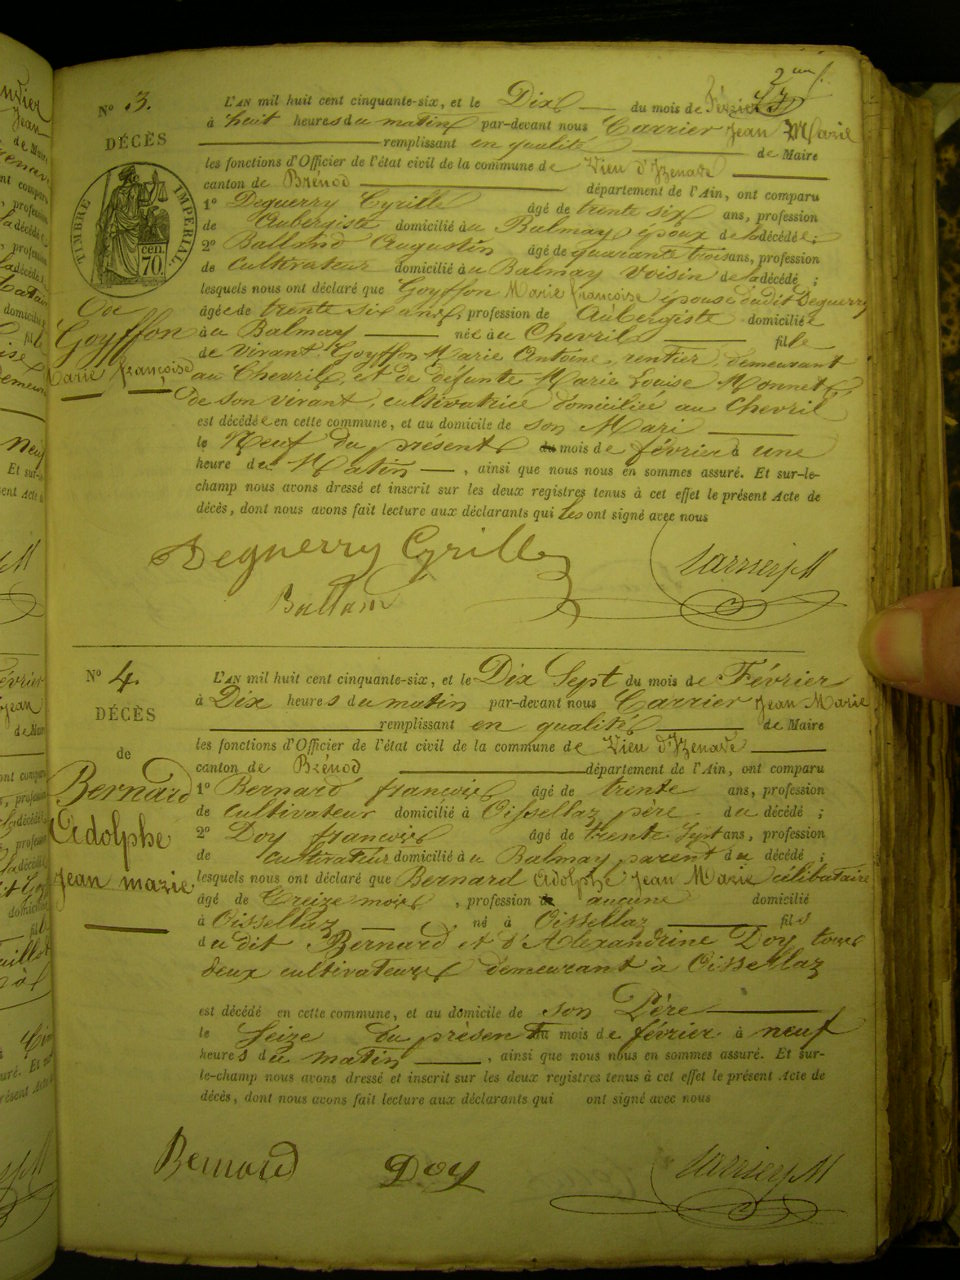 2
N° 3.
DÉCÈS
TIMBRE IMPÉRIAL
70. cen.
De
Goyffon
Marie françoise
L'AN mil huit cent cinquante-six, et le Dix du mois de Février
à huit heures du matin par-devant nous Carrier Jean Marie
remplissant en qualité de Maire
les fonctions d'Officier de l'état civil de la commune de Vieu d'Izenave
canton de Brénod département de l'Ain, ont comparu
1° Deguerry Cyrille âgé de trente six ans, profession
de Aubergiste domicilié au Balmay époux de la décédée;
2° Balland Augustin âgé de quarante trois ans, profession
de Cultivateur domicilié au Balmay Voisin de la décédé ;
lesquels nous ont déclaré que Goyffon Marie françoise épouse dudit Deguerry
âgée de trente six ans, profession de Aubergiste domiciliée
à au Balmay née au Chevril fille
de vivant Goyffon Marie Antoine, rentier, demeurant
au Chevril, et de défunte Marie Louise Monnet
de son vivant, cultivatrice domiciliée au Chevril
est décédée en cette commune, et au domicile de son Mari
le Neuf du présent du mois de février à une
heure du Matin , ainsi que nous nous en sommes assuré. Et sur-le-
champ nous avons dressé et inscrit sur les deux registres tenus à cet effet le présent Acte de
décès, dont nous avons fait lecture aux déclarants qui les ont signé avec nous
Deguerry Cyrille
Balland
Carrier JM
N° 4.
DÉCÈS
de
Bernard
Adolphe
Jean marie
L'AN mil huit cent cinquante-six, et le Dix Sept du mois de Février
à Dix heures du matin par-devant nous Carrier Jean Marie
remplissant en qualité de Maire
les fonctions d'Officier de l'état civil de la commune de Vieu d'Izenave
canton de Brénod département de l'Ain, ont comparu
1° Bernard françois âgé de trente ans, profession
de cultivateur domicilié à Oissellaz père du décédé ;
2° Doy françois âgé de trente Sept ans, profession
de cultivateur domicilié au Balmay parent du décédé ;
lesquels nous ont déclaré que Bernard Adolphe Jean Marie célibataire
âgé de Treize mois , profession de aucune domicilié
à Oissellaz né à Oissellaz fils
du dit Bernard et d'Alexandrine Doy tous
deux cultivateurs demeurant à Oissellaz
est décédé en cette commune, et au domicile de son Père
le Seize du présent du mois de février à neuf
heures du matin , ainsi que nous nous en sommes assuré. Et sur-
le-champ nous avons dressé et inscrit sur les deux registres tenus à cet effet le présent Acte de
décès, dont nous avons fait lecture aux déclarants qui ont signé avec nous
Bernard Doy Carrier JM